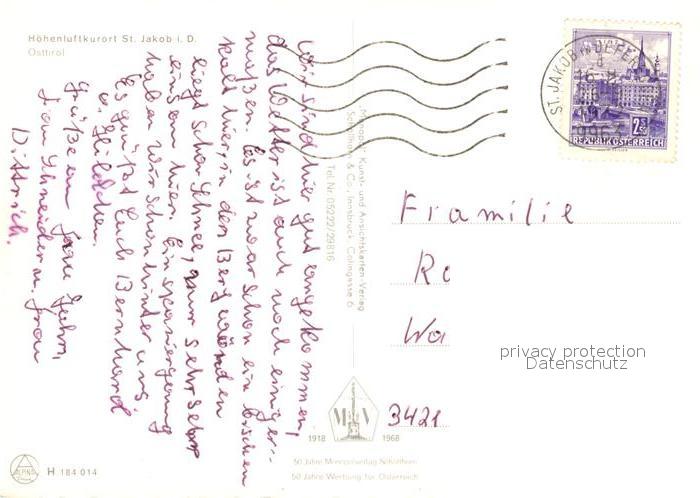 Höhenluftkurort St. Jakob i. D.
Osttirol
Wir sind hier gut angekommen,
das Wetter ist auch noch einiger-
maßen. Es ist zwar schon ein bischen
kalt hier, in den Bergwänden
liegt schon Schnee, nur sehr sehr
einsam hier. Ein spaziergang
haben wir schon hinter uns
Es grüßt Euch Bernhard
u. Gildchen.
Grüße an Frau Jahn,
Frau Schneider u. Frau
Dittrich.
Monopol-Kunst- und Ansichtskarten-Verlag
Schöllhorn & Co., Innsbruck, Colingasse 6
Tel. Nr. 05222/29816
ST. JAKOB IN DEFER
16.
9963
2.50
REPUBLIK ÖSTERREICH
Framilie
Ro
Wa
3421
privacy protection
Datenschutz
M V
1918 1968
50 Jahre Monopolverlag Schöllhorn
50 Jahre Werbung für Österreich
ALPINA
H 184 014